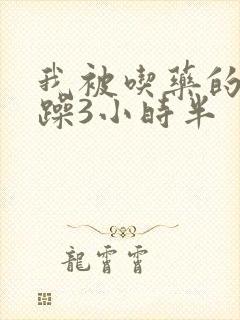 我被喫藥的
躁3小時半
龍霄霄